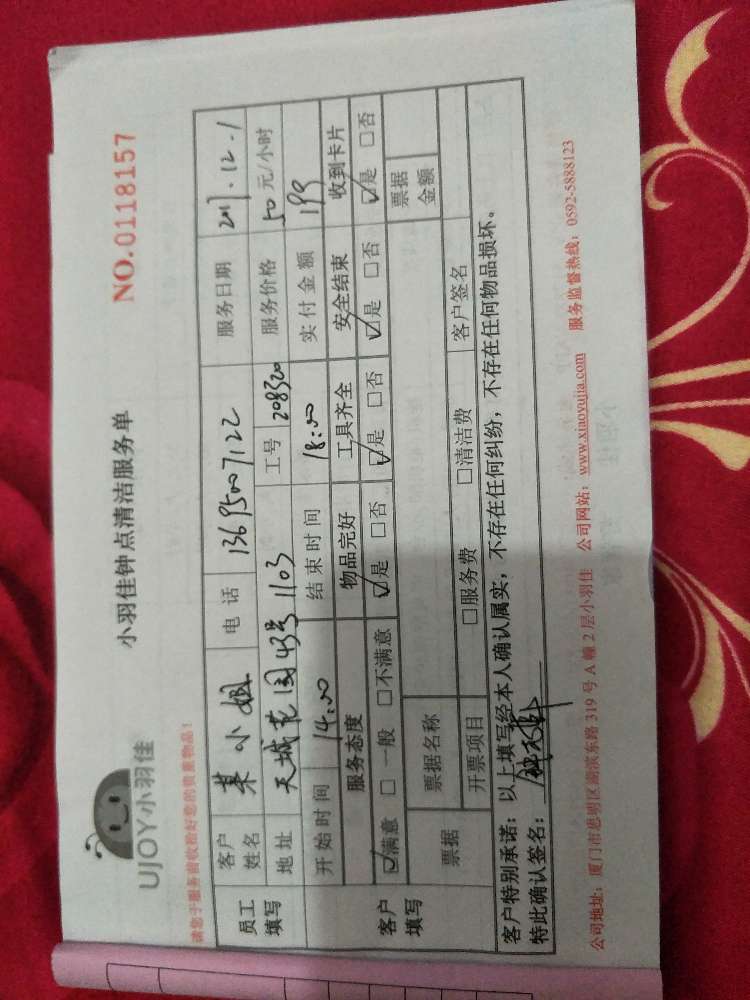 UJOY小羽佳
小羽佳钟点清洁服务单
NO.0118157
请您于服务前收拾好您的贵重物品!
员工填写 客户姓名 某小姐 电话 13695007122 服务日期 2017.12.1
地址 天城花园43号1103 工号 208320 服务价格 50元/小时
开始时间 14:00 结束时间 18:00 实付金额 199
客户填写 服务态度 物品完好 工具齐全 安全结束 收到卡片
☑满意 □一般 □不满意 ☑是 □否 ☑是 □否 ☑是 □否 ☑是 □否
票据 票据名称 票据金额
开票项目 □服务费 □清洁费 客户签名
客户特别承诺:以上填写经本人确认属实,不存在任何纠纷,不存在任何物品损坏。
特此确认签名:
公司地址:厦门市思明区湖滨东路319号A幢2层小羽佳 公司网站:www.xiaoyujia.com 服务监督热线:0592-5888123